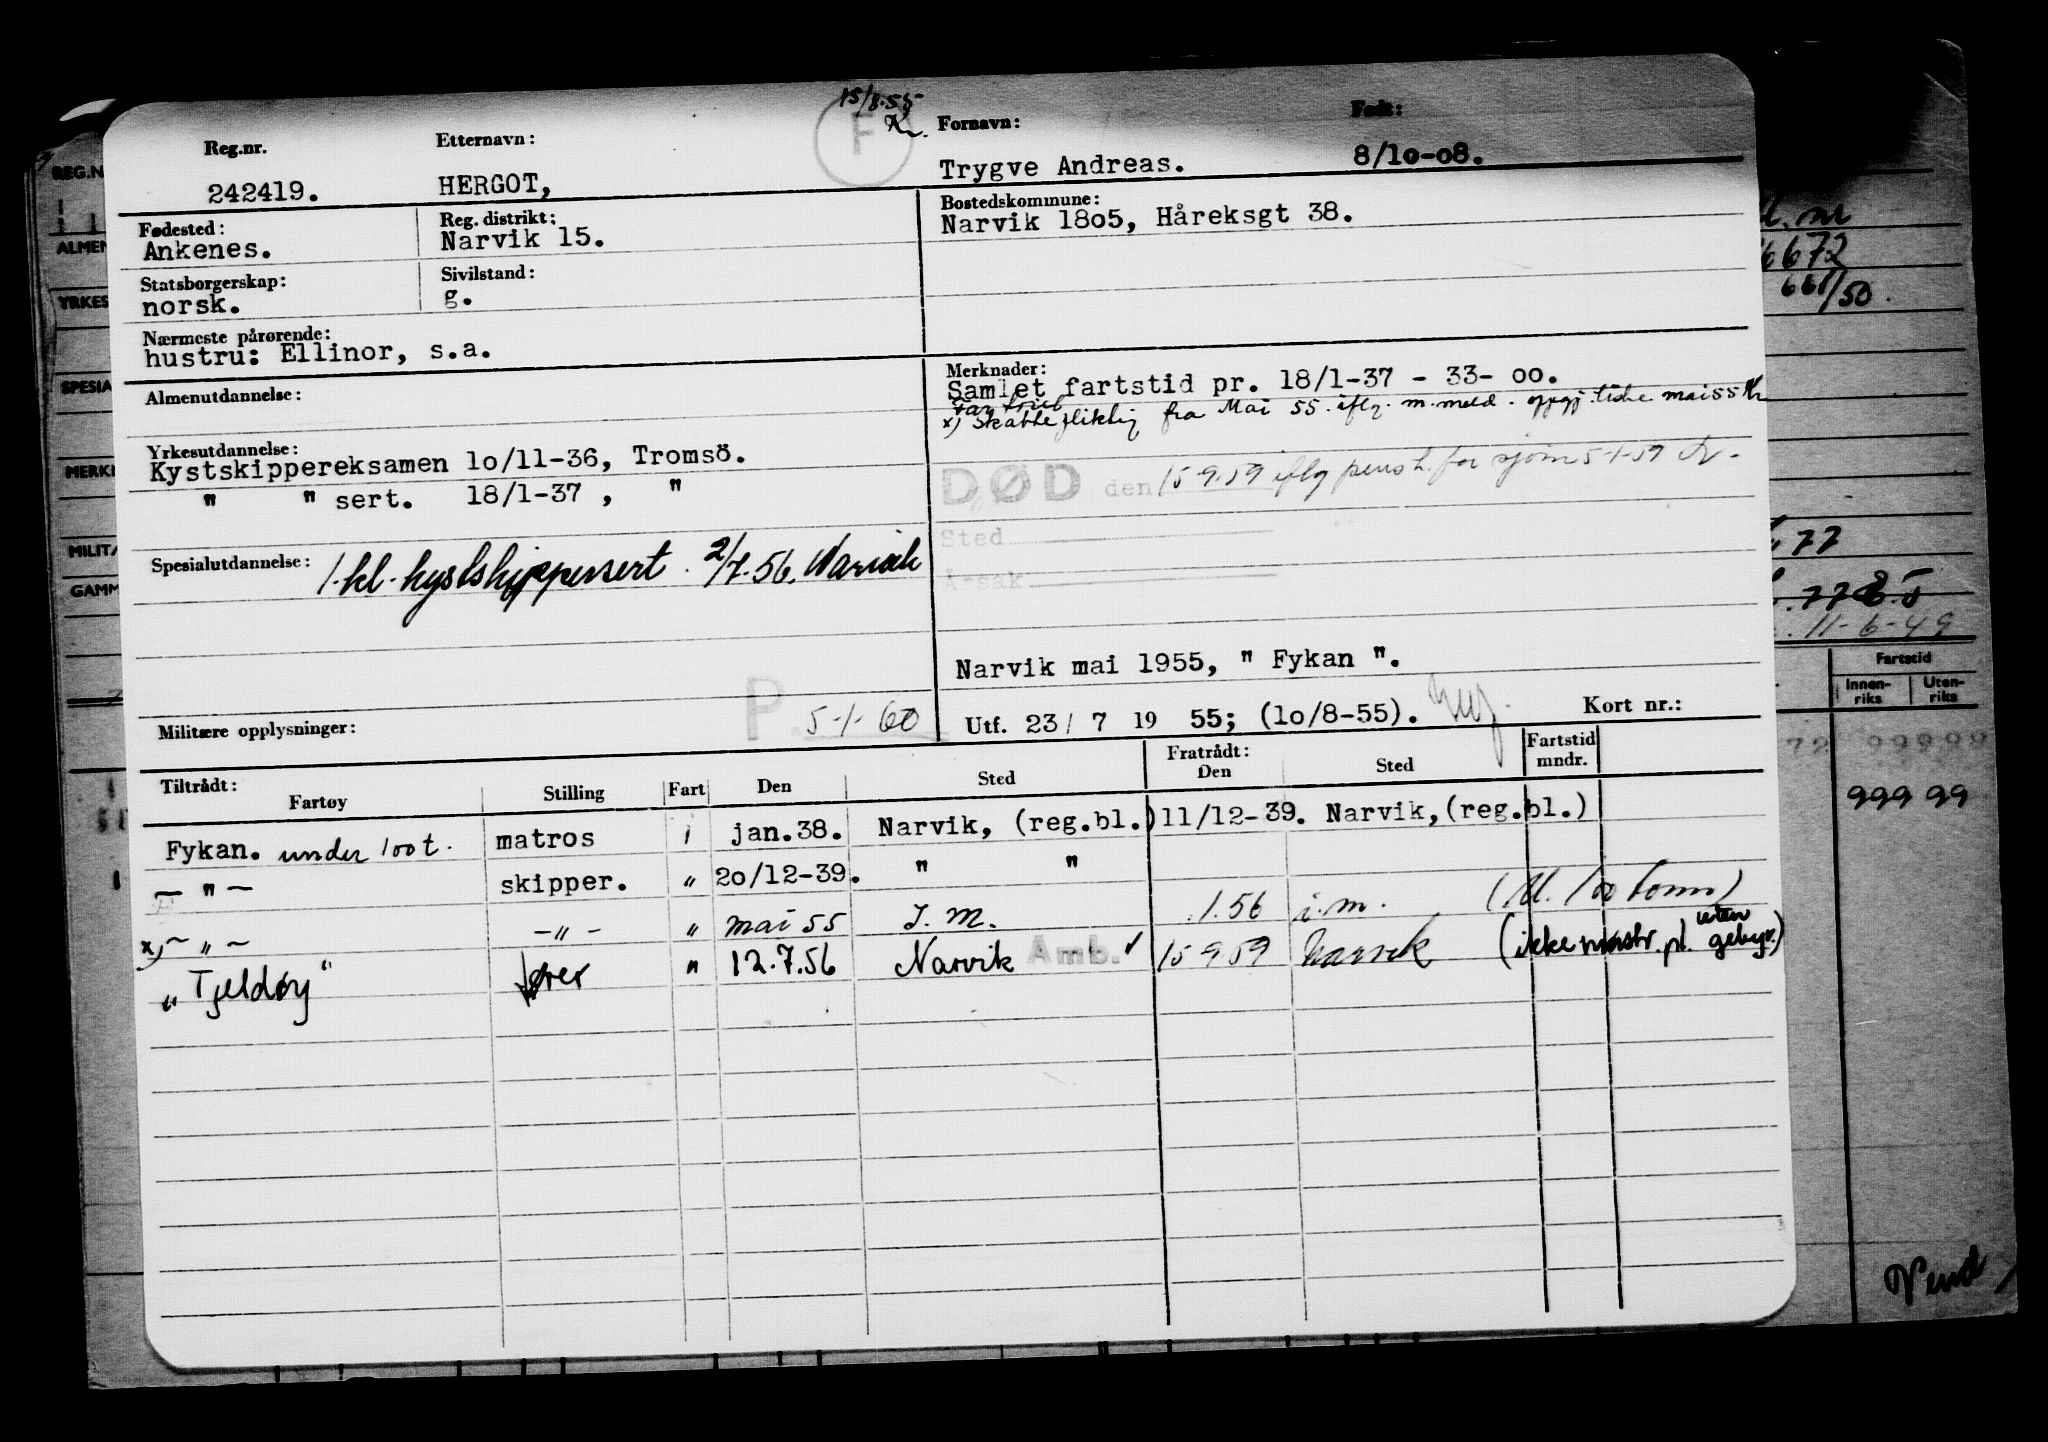 15/8-55
F
Reg.nr. Etternavn: Fornavn: Født:
242419. HERGOT, Trygve Andreas. 8/10-08.
Fødested: Reg. distrikt: Bostedskommune:
Ankenes. Narvik 15. Narvik 1805, Håreksgt 38.
Statsborgerskap: Sivilstand:
norsk. g.
Nærmeste pårørende:
hustru: Ellinor, s.a.
Almenutdannelse:
Merknader:
Samlet fartstid pr. 18/1-37 - 33- 00.
x) Skattepliktig fra Mai 55 iflg. m.meld. oppgj.liste mai 55
Yrkesutdannelse:
Kystskippereksamen 10/11-36, Tromsö.
" " sert. 18/1-37 , "
DØD den 15-9-59 iflg pens.t. for sjøm 5-1-59
Sted
Årsak
Spesialutdannelse: 1.kl. kystskippersert. 2/7.56. Narvik
Narvik mai 1955, " Fykan ".
P. 5-1-60
Militære opplysninger:
Utf. 23/ 7 19 55; (10/8-55). Kort nr.:
Tiltrådt: Fratrådt: Fartstid
Fartøy Stilling Fart Den Sted Den Sted mndr.
Fykan. under 100 t. matros i jan.38. Narvik, (reg.bl.) 11/12-39. Narvik,(reg.bl.)
— " — skipper. " 20/12-39. " "
x) — " — — " — " mai 55 I.M. .1.56 i.m. (u. 100 tonn)
"Tjeldøy" fører " 12.7.56 Narvik Amb. ✓ 15 9 59 Narvik (ikke mønstr.pl. uten gebyr.)
REG.N
ALMEN
YRKES
SPESIA
MERK
MILIT
GAMM
672
661/50.
77
77
11-6-49
Fartstid
Innen-
riks
Uten-
riks
72 99999
999 99
Vend